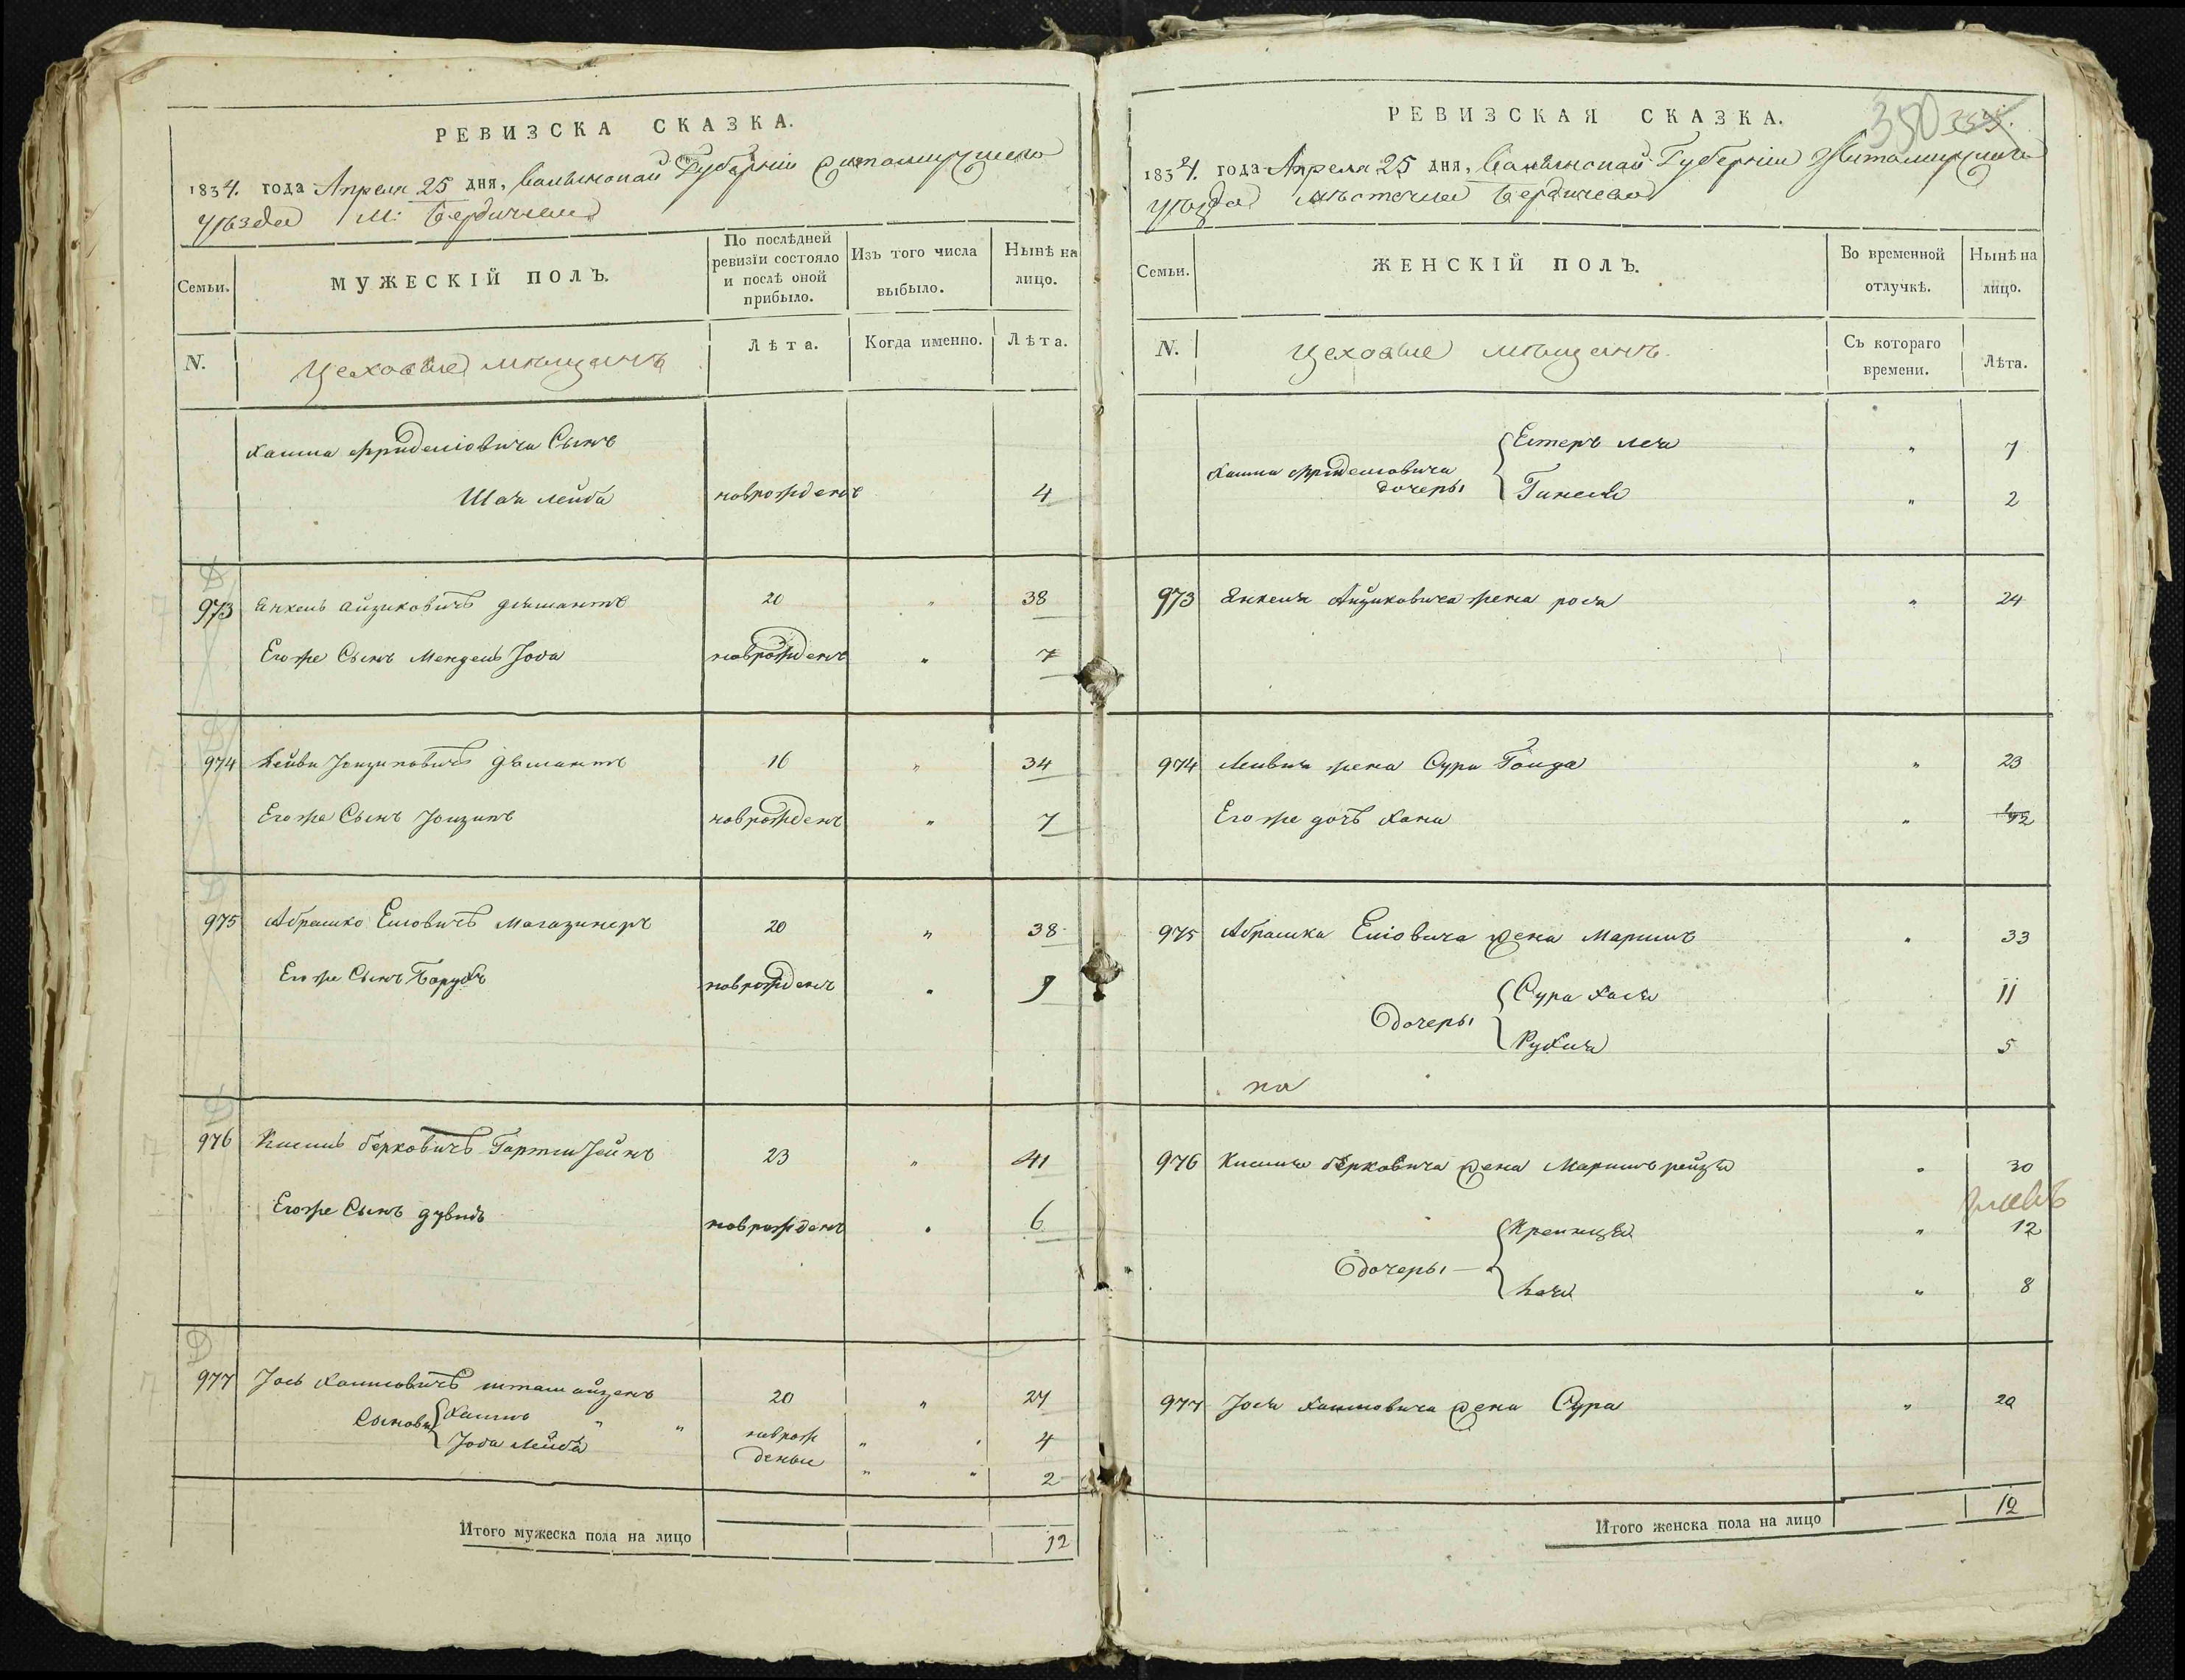 РЕВИЗСКА СКАЗКА.
1834. года Апреля 25 дня, Волынской Губернiи Житомирскаго
уѣзда М: Бердичева
Семьи.
МУЖЕСКIЙ ПОЛЪ.
По послѣдней
ревизiи состояло
и послѣ оной
прибыло.
Изъ того числа
выбыло.
Нынѣ на
лицо.
N.
Цеховые мѣщанъ
Лѣта.
Когда именно.
Лѣта.
Хаима Фриделiовича Сынъ
Шая Лейба новрожденъ 4
973 Янкель Айзиковичъ дѣмантъ 20 " 38
Егоже Сынъ Мендель Iося новрожденъ " 7
974 Лейви Iоизиковичъ дѣмантъ 16 " 34
Егоже Сынъ Iоизикъ новрожденъ " 7
975 Абрамко Елiовичъ Магазинеръ 20 " 38
Егоже Сынъ Борухъ новрожденъ " 9
976 Кисиль берковичъ 23 " 41
Егоже Сынъ дувидъ новрожденъ " 6
977 Iось Хаимовичъ штамайзенъ 20 " 27
Сыновья { Хаимъ " " новрож " " 4
Iося Лейба деные " " 2
Итого мужеска пола на лицо 12
РЕВИЗСКАЯ СКАЗКА.
350
1834. года Апреля 25 дня, Волынской Губернiи Житомирскаго
уѣзда мѣстечка Бердичева
Семьи.
ЖЕНСКIЙ ПОЛЪ.
Во временной
отлучкѣ.
Нынѣ на
лицо.
N.
Цеховые мѣщанъ.
Съ котораго
времени.
Лѣта.
Хаима Фриделовича
дочеры
{ Естеръ Лея " 7
Гинеся " 2
973 Янкеля Айзиковича жена рося " 24
974 Лейвия жена Сура Гоида " 23
Егоже дочь Хана " 1/12
975 Абрамка Елiовича жена Маримъ " 33
Дочеры { Сура Хася 11
Рухля 5
на
976 Кисиля берковича жена Маримъ рейзя " 30
Дочеры — { Крейнця " 12
Хая " 8
977 Iося Хаимовича жена Сура " 20
12
Итого женска пола на лицо